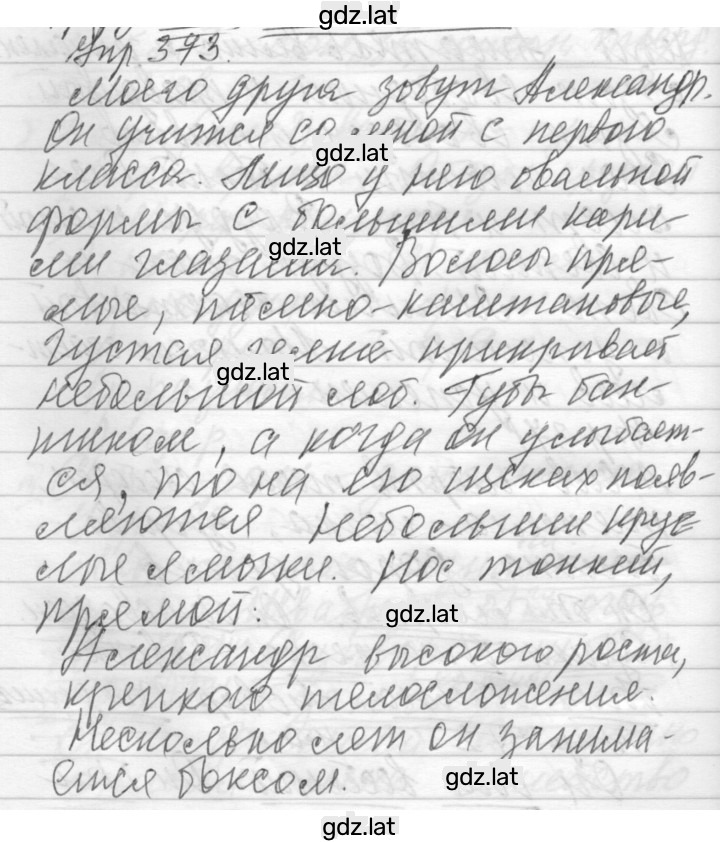 gdz.lat
Упр. 373.
Моего друга зовут Александр.
Он учится со мной с первого
gdz.lat
класса. Лицо у него овальной
формы с большими кари-
gdz.lat
ми глазами. Волосы пря-
мые, тёмно-каштановые,
густая челка прикрывает
gdz.lat
небольшой лоб. Губы бан-
тиком, а когда он улыбает-
ся, то на его щеках появ-
ляются небольшие круг
лые ямочки. Нос тонкий,
прямой.
gdz.lat
Александр высокого роста,
крепкого телосложения.
Несколько лет он занима-
ется боксом.
gdz.lat
gdz.lat